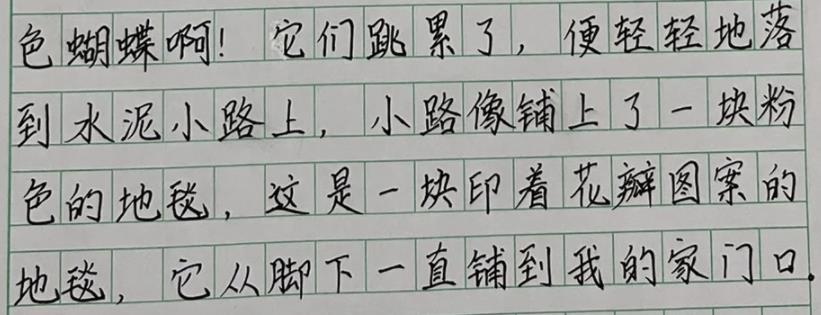 色蝴蝶啊！它们跳累了，便轻轻地落
到水泥小路上，小路像铺上了一块粉
色的地毯，这是一块印着花瓣图案的
地毯，它从脚下一直铺到我的家门口.